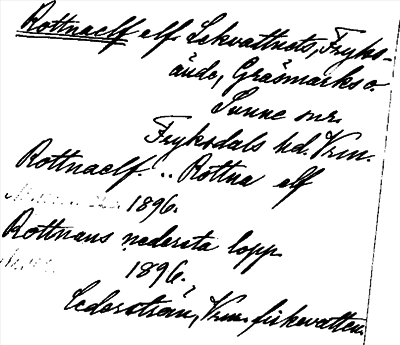 Rottnaelf elf Lekvattnets, Fryks-
ände, Gräsmarks o.
Sunne snr.
Fryksdals hd. Vrm.
Rottnaelf ... Rottna elf
1896.
Rottnans nedersta lopp
1896.
Vrm. fiskevatten.